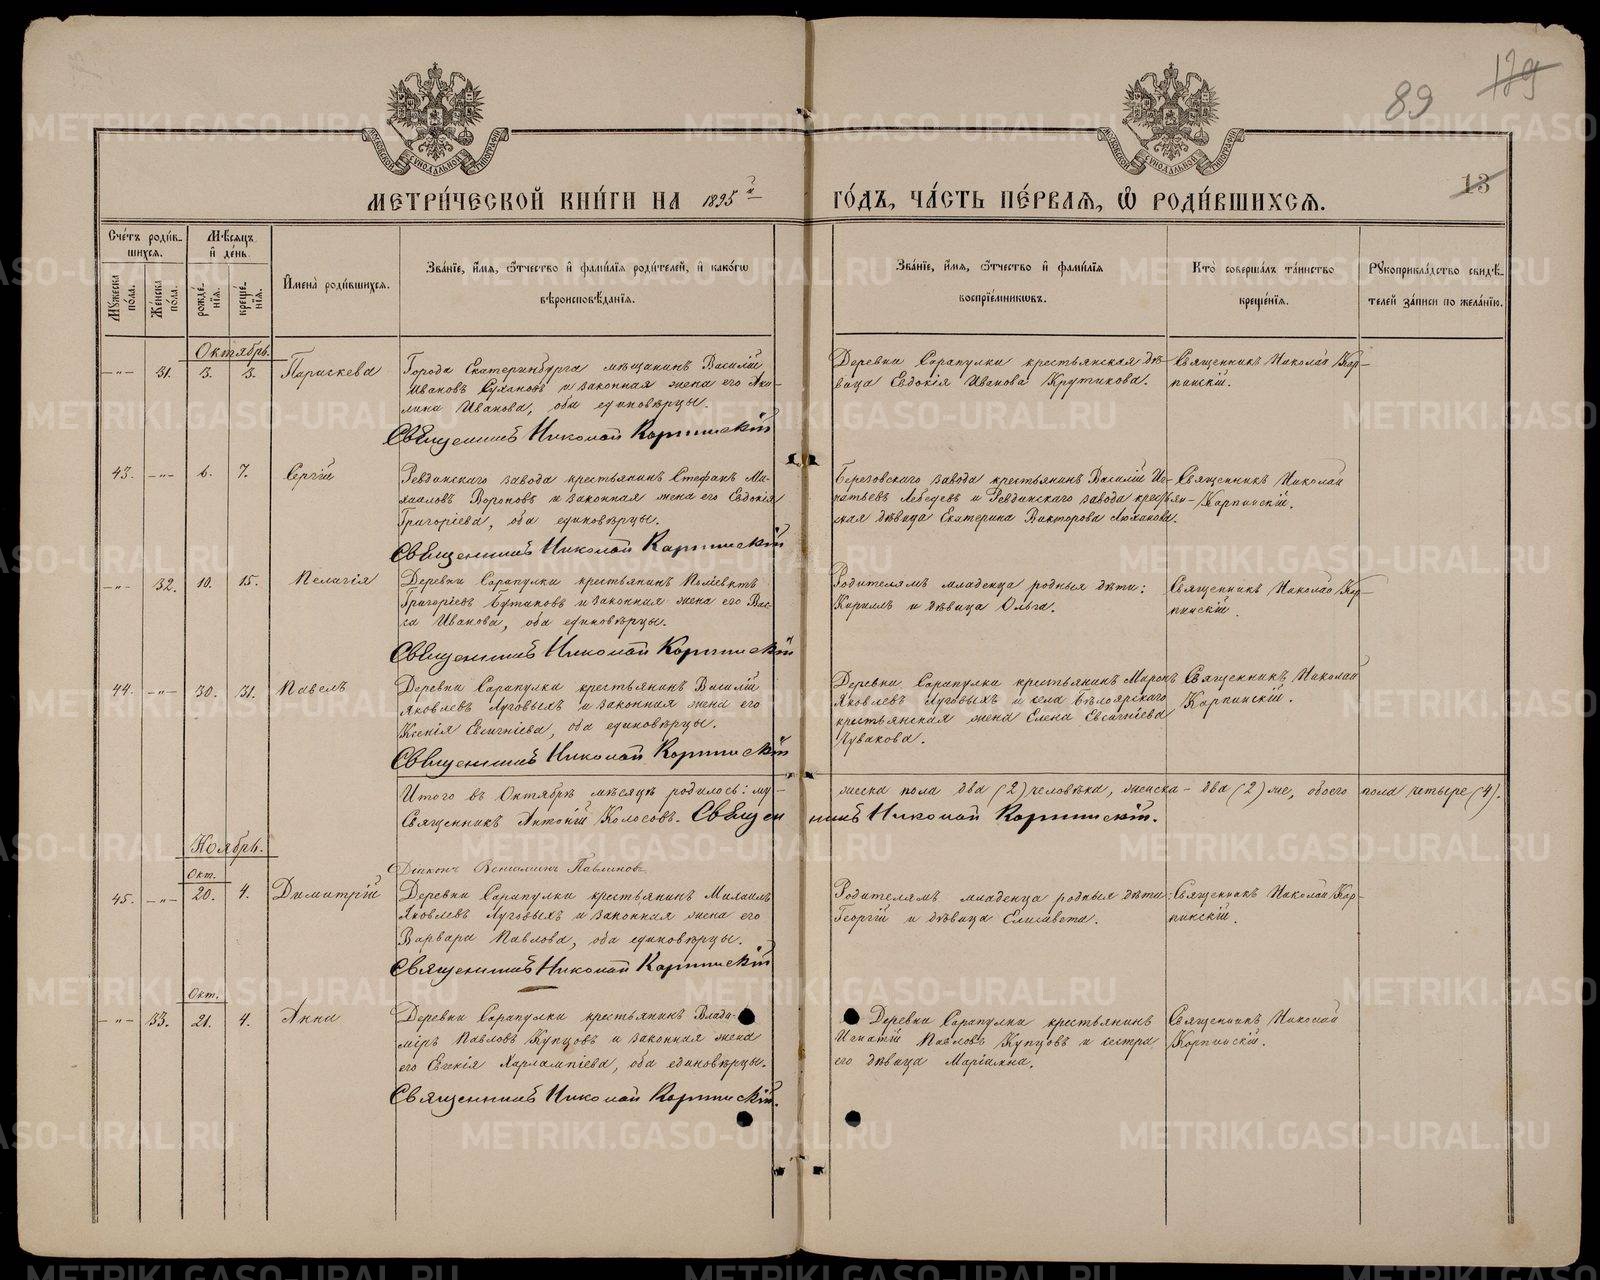 89
129
13
МЕТРИ́ЧЕСКОЙ КНИ́ГИ НА 1895й ГО́ДЪ, ЧА́СТЬ ПЕ́РВАѦ, Ѡ РОДИ́ВШИХСѦ.
Сче́тъ роди́вшихсѧ.
Мѣ́сѧцъ и҆ де́нь.
И҆мена̀ роди́вшихсѧ.
Зва́нїе, и҆́мѧ, ѻ҆́тчество и҆ фами́лїѧ роди́телей, и҆ како́гѡ вѣроисповѣ́данїѧ.
Зва́нїе, и҆́мѧ, ѻ҆́тчество и҆ фами́лїѧ воспрїе́мниковъ.
Кто̀ соверша́лъ та́инство креще́нїѧ.
Рꙋкоприкла́дство свидѣ́телей за́писи по жела́нїю.
Мꙋ́жеска по́ла.
Же́нска по́ла.
рожде́нїѧ.
креще́нїѧ.
Октябрь.
-"- 31. 3. 3. Параскева
Города Екатеринбурга мѣщанинъ Василій
Ивановъ Сухановъ и законная жена его Аки-
лина Иванова, оба единовѣрцы.
Священникъ Николай Карпинскій
Деревни Сарапулки крестьянская дѣ-
вица Евдокія Иванова Крутикова.
Священникъ Николай Кар-
пинскій.
43. -"- 6. 7. Сергій
Ревдинскаго завода крестьянинъ Стефанъ Ми-
хаиловъ Вороновъ и законная жена его Евдокія
Григоріева, оба единовѣрцы.
Священникъ Николай Карпинскій
Березовскаго завода крестьянинъ Василій Иг-
натьевъ Лебедевъ и Ревдинскаго завода крестьян-
ская дѣвица Екатерина Викторова
Священникъ Николай
Карпинскій.
-"- 32. 10. 15. Пелагія
Деревни Сарапулки крестьянинъ Поліевктъ
Григоріевъ Бутаковъ и законная жена его Вас-
са Иванова, оба единовѣрцы.
Священникъ Николай Карпинскій
Родителямъ младенца родныя дѣти:
Кириллъ и дѣвица Ольга.
Священникъ Николай Кар-
пинскій.
44. -"- 30. 31. Павелъ
Деревни Сарапулки крестьянинъ Василій
Яковлевъ Луговыхъ и законная жена его
Ксенія Евсигніева, оба единовѣрцы.
Священникъ Николай Карпинскій
Деревни Сарапулки крестьянинъ Миронъ
Яковлевъ Луговыхъ и села Бѣлоярскаго
крестьянская жена Елена Евсигніева
Чувакова.
Священникъ Николай
Карпинскій.
Итого въ Октябрѣ мѣсяцѣ родилось: му-
жеска пола два (2) человѣка, женска - два (2) же, обоего пола четыре (4).
Священникъ Антоній Колосовъ. Священникъ Николай Карпинскій.
Діаконъ Веніаминъ Павлиновъ
Ноябрь.
Окт.
45. -"- 20. 4. Димитрій
Деревни Сарапулки крестьянинъ Михаилъ
Яковлевъ Луговыхъ и законная жена его
Варвара Павлова, оба единовѣрцы.
Священникъ Николай Карпинскій
Родителямъ младенца родныя дѣти:
Георгій и дѣвица Елисавета.
Священникъ Николай Кар-
пинскій.
Окт.
-"- 33. 21. 4. Анна
Деревни Сарапулки крестьянинъ Влади-
міръ Павловъ Купцовъ и законная жена
его Евгенія Харлампіева, оба единовѣрцы.
Священникъ Николай Карпинскій.
Деревни Сарапулки крестьянинъ
Игнатій Павловъ Купцовъ и сестра
его дѣвица Маріамна.
Священникъ Николай
Карпинскій.
METRIKI.GASO-URAL.RU